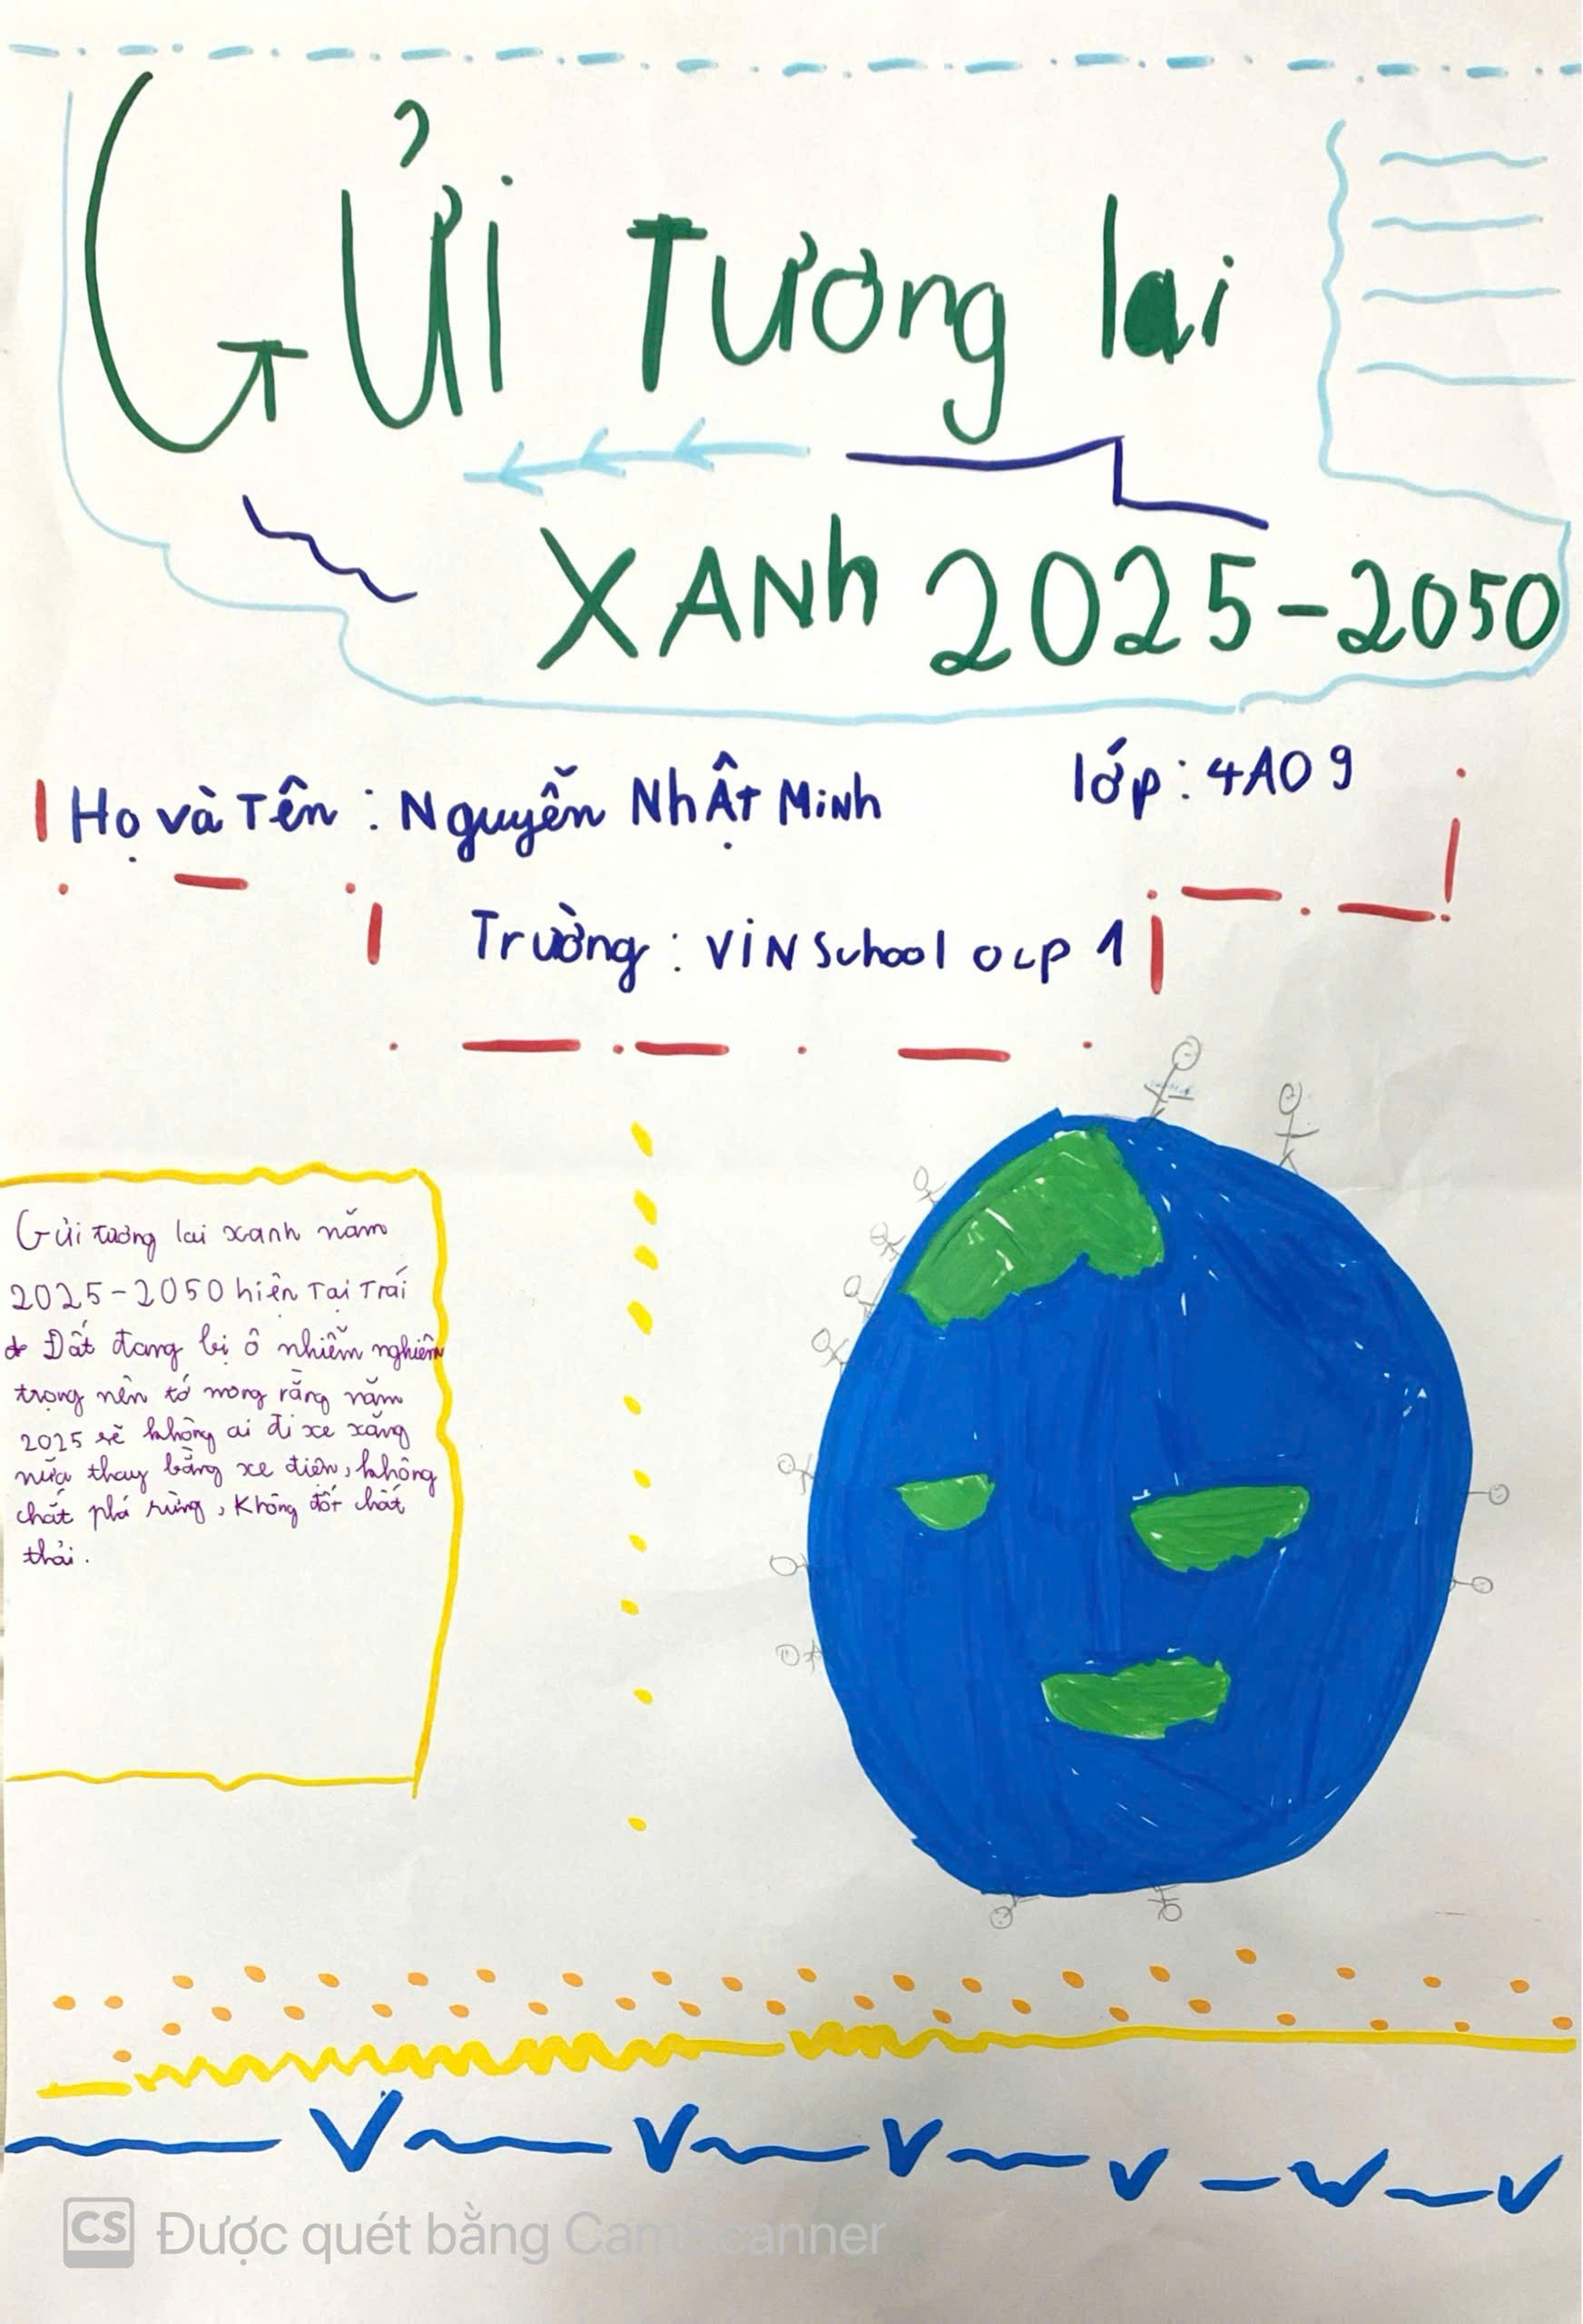 Gửi Tương lai
XANh 2025-2050
Họ và Tên : Nguyễn NhẬT MiNh
lớp : 4A09
Trường : ViNSchool ocp 1
Gửi tương lai xanh năm
2025-2050 hiện Tại Trái
Đất đang bị ô nhiễm nghiêm
trọng nên tớ mong rằng năm
2025 sẽ không ai đi xe xăng
nữa thay bằng xe điện, không
chặt phá rừng, Không đốt chất
thải.
CS Được quét bằng CamScanner